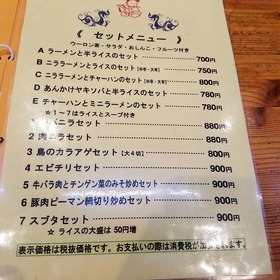 《 セットメニュー 》
ウーロン茶・サラダ・おしんこ・フルーツ付き
A ラーメンと半ライスのセット 700円
B ニララーメンとライスのセット(中辛・大辛) 750円
C ニララーメンとチャーハンのセット(中辛・大辛) 800円
D あんかけヤキソバと半ライスのセット 800円
E チャーハンとミニラーメンのセット 780円
☆1～7はライスとスープ付き
ニラセット 880円
2 肉ニラセット 880円
3 鳥のカラアゲセット【大4切】 880円
4 エビチリセット 900円
5 牛バラ肉とチンゲン菜のみそ炒めセット 900円
6 豚肉ピーマン細切り炒めセット 900円
7 スブタセット 900円
☆ ライスの大盛は 50円増
表示価格は税抜価格です。お支払いの際は消費税が加算されます。